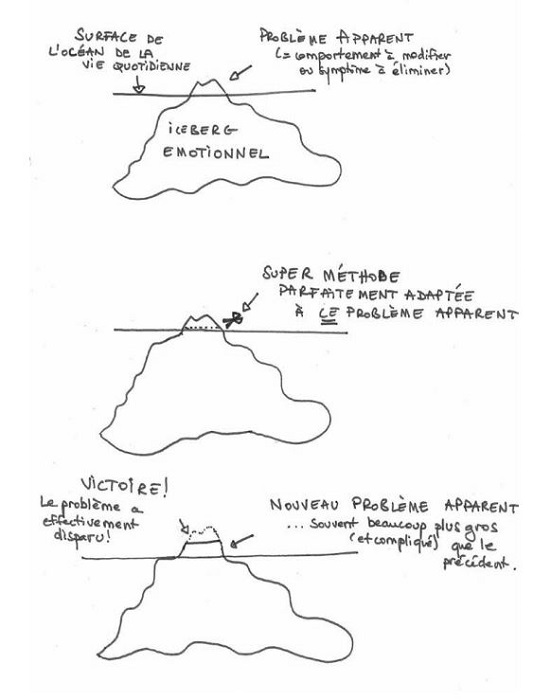 SURFACE DE
L'OCÉAN DE LA
VIE QUOTIDIENNE
PROBLÈME APPARENT
(= comportement à modifier
ou symptôme à éliminer)
iCEBERG
EMOTIONNEL
SUPER MÉTHODE
PARFAITEMENT ADAPTÉE
À CE PROBLÈME APPARENT
VICTOIRE!
Le problème a
effectivement
disparu!
NOUVEAU PROBLÈME APPARENT
... souvent beaucoup plus gros
(et compliqué) que le
précédent.